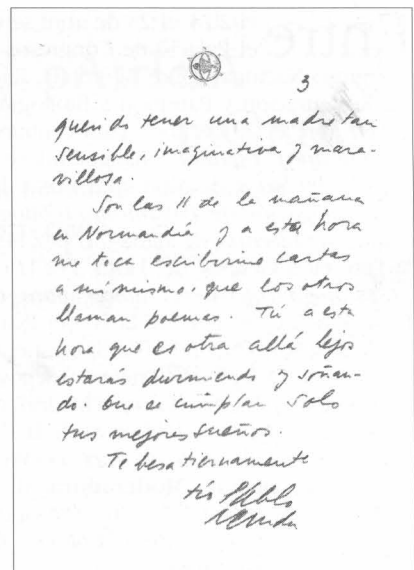 3
querido tener una madre tan
sensible, imaginativa y mara-
villosa.
Son las 11 de la mañana
en Normandía y a esta hora
me toca escribirme cartas
a mí mismo, que los otros
llaman poemas. Tú a esta
hora que es otra allá lejos
estarás durmiendo y soñan-
do. Que se cumplan solo
tus mejores sueños.
Te besa tiernamente
tío Pablo
Neruda